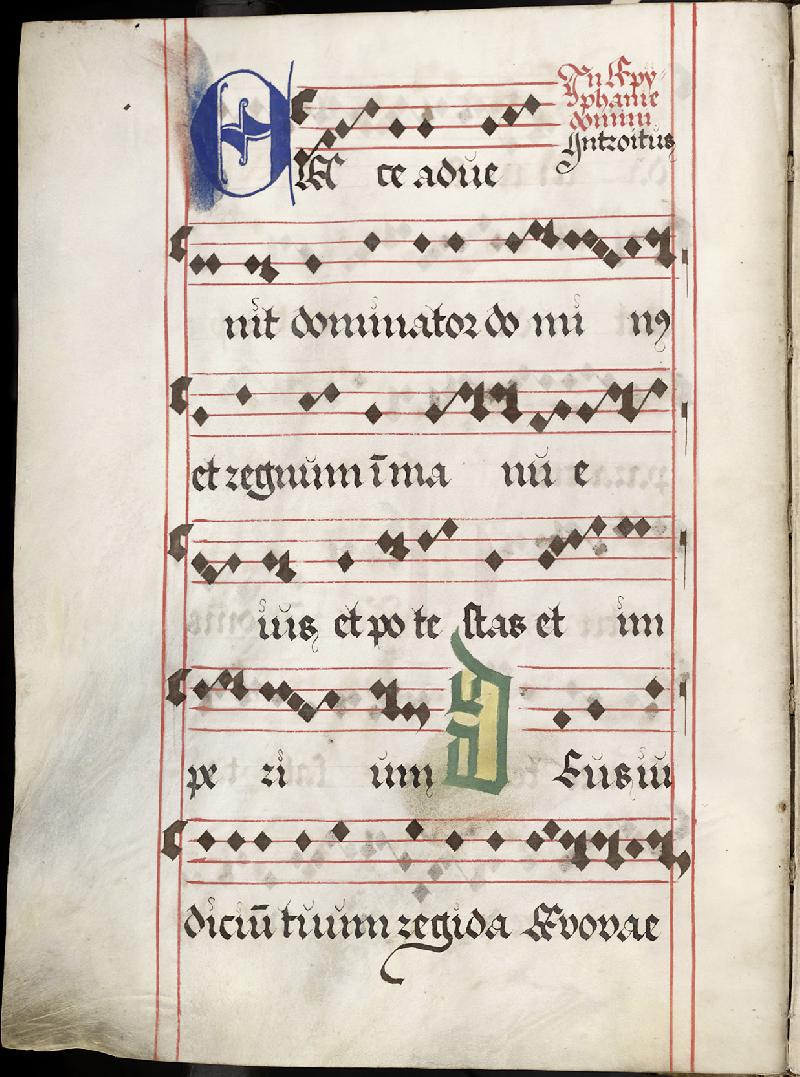 In Epy
phanie
domini
Introitus
Ecce adue
nit dominator do mi nꝰ
et regnum ī ma nu e
ius et po te stas et im
pe ri um Deus iu
diciū tuum regi da Evovae